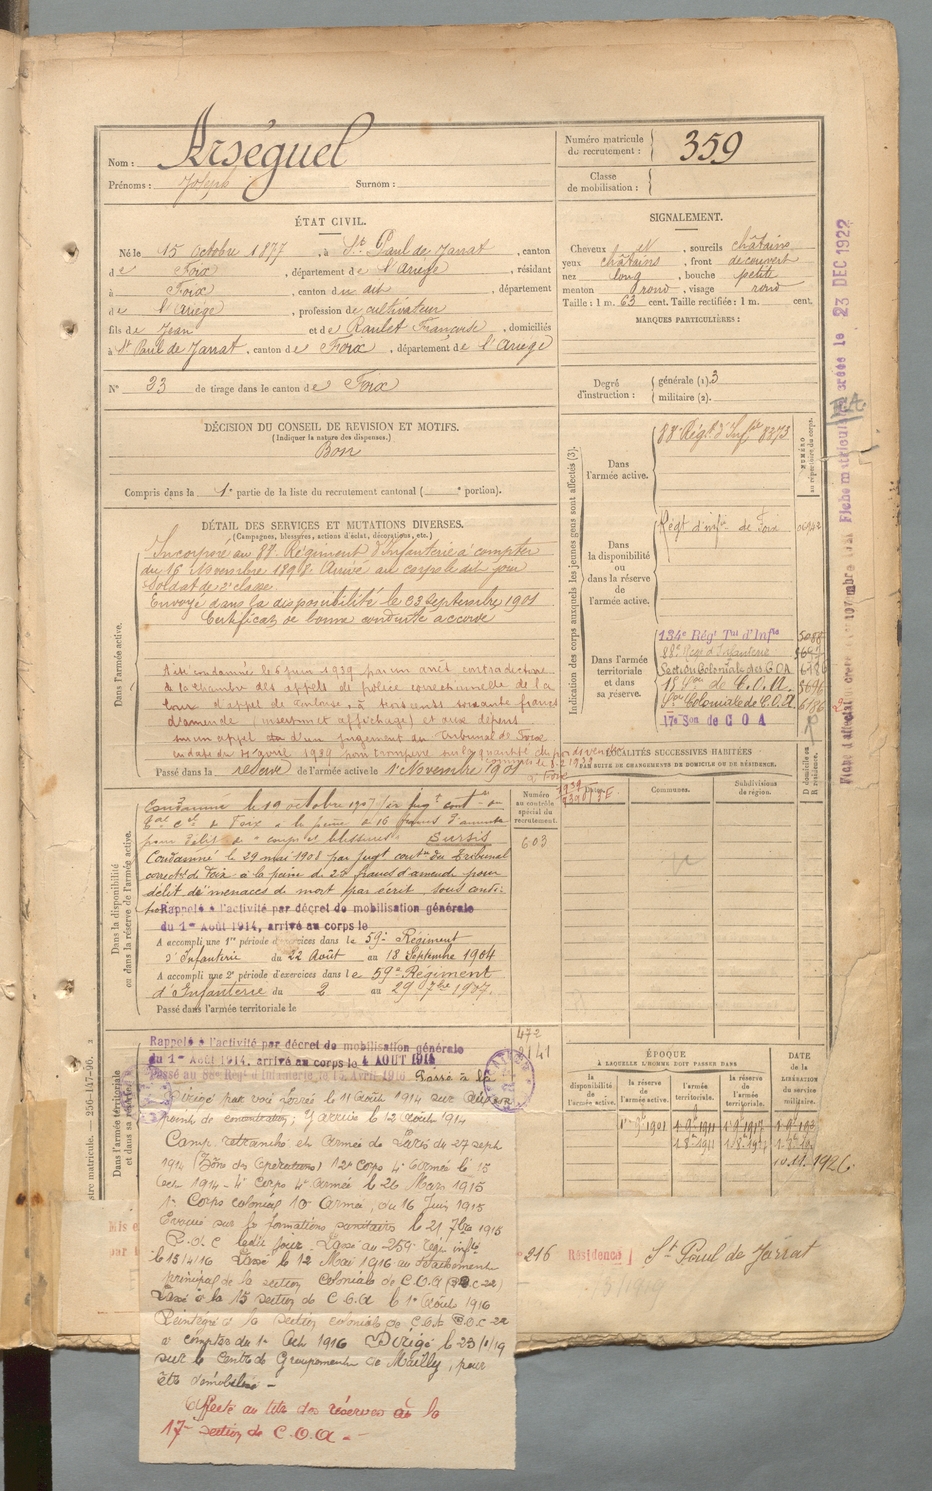 Nom : Arséguel
Prénoms : Joseph Surnom :
Numéro matricule du recrutement : 359
Classe de mobilisation :
ÉTAT CIVIL.
Né le 15 octobre 1877, à St Paul de Jarrat, canton
de Foix, département de l'Ariège, résidant
à Foix, canton du dit, département
de l'Ariège, profession de cultivateur
fils de Jean et de Raulet Françoise, domiciliés
à St Paul de Jarrat, canton de Foix, département de l'Ariège
N° 23 de tirage dans le canton de Foix
SIGNALEMENT.
Cheveux et, sourcils châtains
yeux châtains, front découvert
nez long, bouche petite
menton rond, visage rond
Taille : 1 m. 63 cent. Taille rectifiée : 1 m. cent.
MARQUES PARTICULIÈRES :
Degré d'instruction : générale (1). 3
militaire (2).
DÉCISION DU CONSEIL DE REVISION ET MOTIFS.
(Indiquer la nature des dispenses.)
Bon
Compris dans la 1e partie de la liste du recrutement cantonal ( e portion).
DÉTAIL DES SERVICES ET MUTATIONS DIVERSES.
(Campagnes, blessures, actions d'éclat, décorations, etc.)
Dans l'armée active.
Incorporé au 88e Régiment d'Infanterie à compter
du 16 Novembre 1898. Arrivé au corps le dit jour
Soldat de 2e classe.
Envoyé dans la disponibilité le 23 Septembre 1901
Certificat de bonne conduite accordé
A été condamné le 6 juin 1939 par un arrêt contradictoire
de la chambre des appels de police correctionnelle de la
Cour d'appel de Toulouse, à trois cents soixante francs
d'amende (insertion et affichage) et aux dépens
sur un appel d'un jugement du Tribunal de Foix
en date du 4 avril 1939 pour tromperie sur la quantité du poids vendu
à Foix
Passé dans la réserve de l'armée active le 1er Novembre 1901
Indication des corps auxquels les jeunes gens sont affectés (3).
Dans l'armée active.
88e Régt d'Infie 8373
NUMÉRO au répertoire du corps.
Dans la disponibilité ou dans la réserve de l'armée active.
Régt d'infie de Foix
Dans l'armée territoriale et dans sa réserve.
134e Régt Tal d'Infie
88e Régt d'Infanterie
Section Coloniale des COA
15 Son de C.O.A.
Son Coloniale de C.O.A 6186
17e Son de COA
Fiche matriculaire créée le 23 DEC 1922
Dans la disponibilité ou dans la réserve de l'armée active.
Condamné le 19 octobre 1907 par jugt contre
de Foix à la peine de 16 francs d'amende
pour délit de coups et blessures. Sursis
Condamné le 29 mai 1908 par jugt contre du Tribunal
correctl de Foix à la peine de 20 francs d'amende pour
délit de menaces de mort par écrit sous condi-
tion
Rappelé à l'activité par décret de mobilisation générale
du 1er Août 1914, arrivé au corps le
A accompli une 1re période d'exercices dans le 59e Régiment
d'Infanterie du 22 Août au 18 Septembre 1904
A accompli une 2e période d'exercices dans le 59e Régiment
d'Infanterie du 2 au 29 7bre 1907.
Passé dans l'armée territoriale le
Numéro au contrôle spécial du recrutement.
603
LOCALITÉS SUCCESSIVES HABITÉES
PAR SUITE DE CHANGEMENTS DE DOMICILE OU DE RÉSIDENCE.
Communes. Subdivisions de région. D domicile ou R résidence.
Dans l'armée territoriale et dans sa réserve
Rappelé à l'activité par décret de mobilisation générale
du 1er Août 1914, arrivé au corps le 4 AOUT 1914
Passé au 88e Régt d'Infanterie le 15 Avril 1916 Passé à la
Dirigé par voie ferrée le 11 Août 1914 sur
point de concentration, y arrivé le 12 Août 1914
Camp retranché et Armée de Paris du 27 sept
1914 (Zône des Opérations) 12e Corps 4e Armée le 15
Oct 1914 - 4e Corps 4e Armée le 26 Mars 1915
1er Corps colonial 10e Armée, du 16 Juin 1915
Evacué sur les formations sanitaires le 21 7bre 1915
ledit jour. Passé au 259e régt infie
le 15/4/16 Passé le 12 Mai 1916 au détachement
principal de la section Coloniale de C.O.A
Passé à la 15 section de C.O.A le 1er Août 1916
Réintégré à la section coloniale de C.O.A
à compter du 1er Oct 1916 Dirigé le 23/1/19
sur le Centre de Groupement de Mailly, pour
être démobilisé -
Affecté au titre des réserves à la
17e section de C.O.A. -
472
ÉPOQUE
À LAQUELLE L'HOMME DOIT PASSER DANS
la disponibilité de l'armée active. la réserve de l'armée active. l'armée territoriale. la réserve de l'armée territoriale.
DATE de la LIBÉRATION du service militaire.
10.11.1926
216 Résidence St Paul de Jarrat